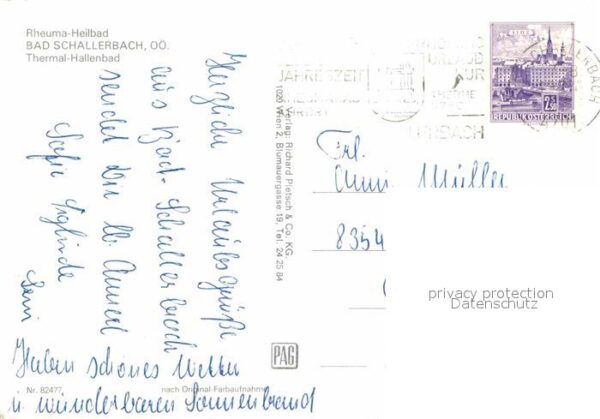 Rheuma-Heilbad
BAD SCHALLERBACH, OÖ.
Thermal-Hallenbad
Herzliche Urlaubsgrüße
aus Bad-Schallerbach
sendet Dir lb. Annerl
Sefa Siglinde
Haben schönes Wetter
u. wunderbaren Sonnenbrand
Nr. 82477
nach Original-Farbaufnahme
PAG
Verlag: Richard Pietsch & Co. KG.
1020 Wien 2, Blumauergasse 19, Tel. 24 25 84
JAHRESZEIT
URLAUB
KUR
SCHALLERBACH
LINZ
2½
REPUBLIK ÖSTERREICH
Frl.
Anni Müller
8354
privacy protection
Datenschutz